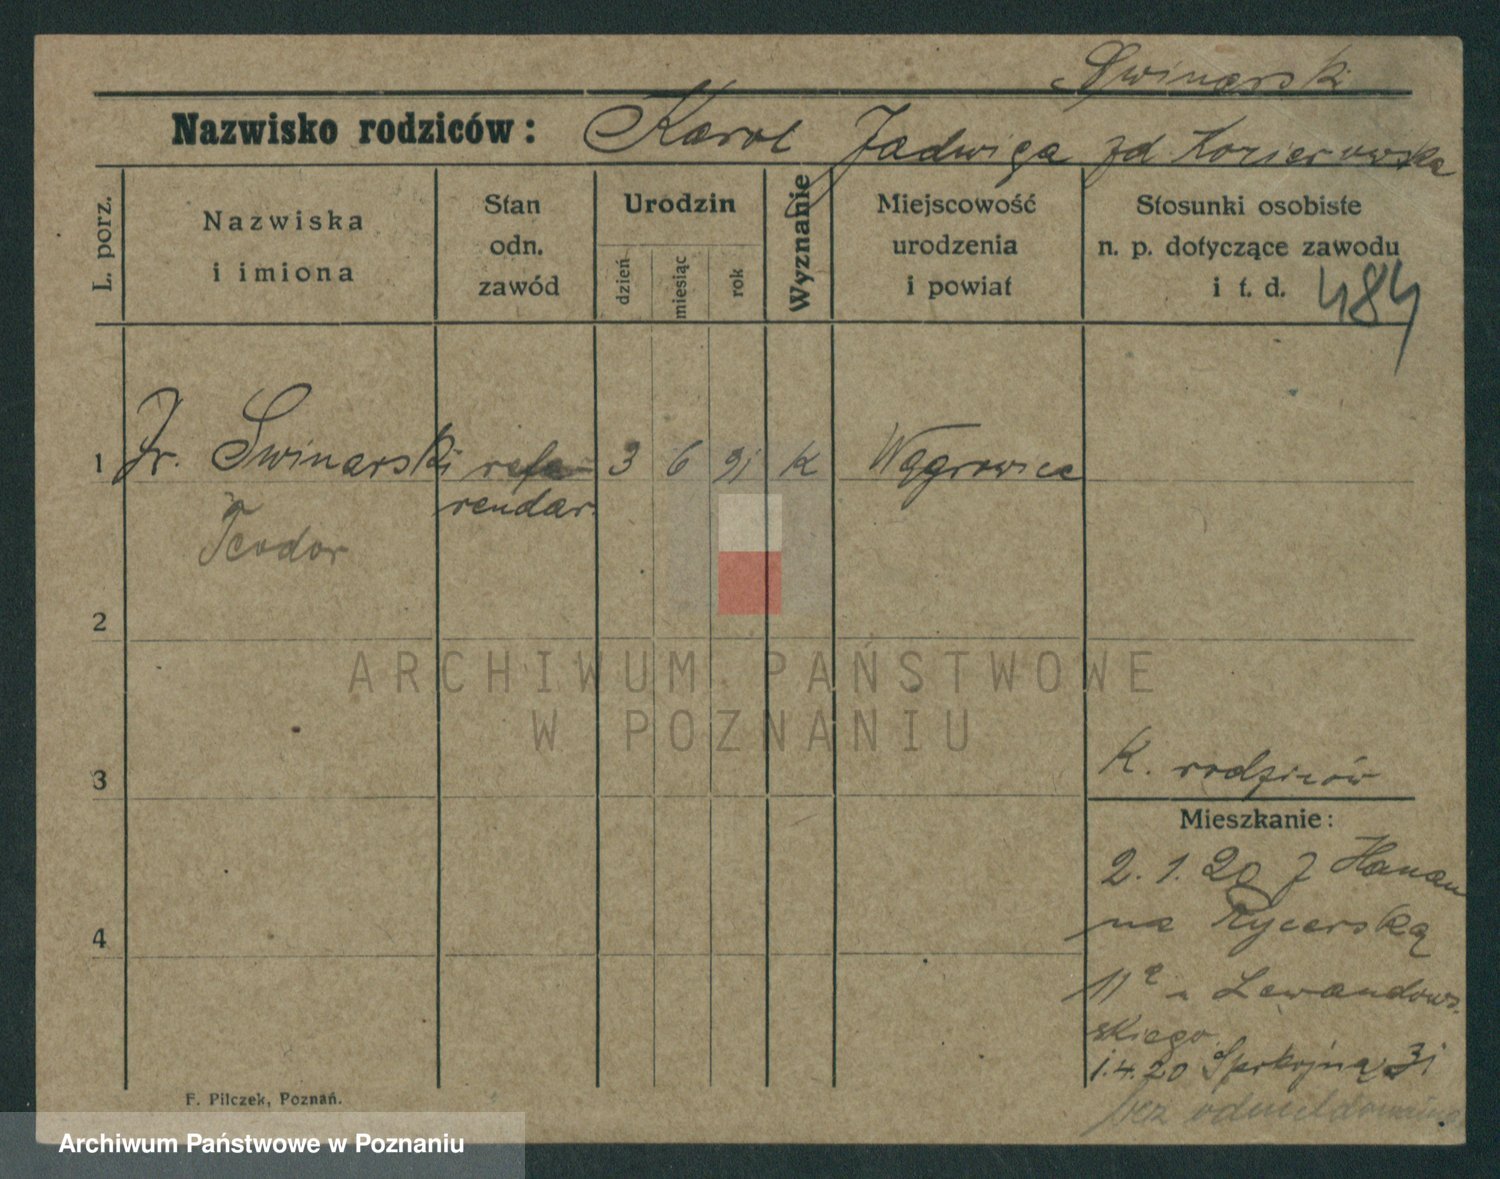 Swinarski
Nazwisko rodziców: Karol Jadwiga zd. Kozierowska
L. porz.
Nazwiska
i imiona
Stan
odn.
zawód
Urodzin
dzień
miesiąc
rok
Wyznanie
Miejscowość
urodzenia
i powiat
Stosunki osobiste
n. p. dotyczące zawodu
i t. d.
484
1 Swinarski refe- 3 6 91 K Wągrowiec
rendar.
Teodor
2
3
4
K. rodziców
Mieszkanie:
2.1.20 Hanau
na Rycerską
11 Lewandows-
skiego
1.4.20 Spokojną 31
bez
F. Pilczek, Poznań.
ARCHIWUM PAŃSTWOWE
W POZNANIU
Archiwum Państwowe w Poznaniu